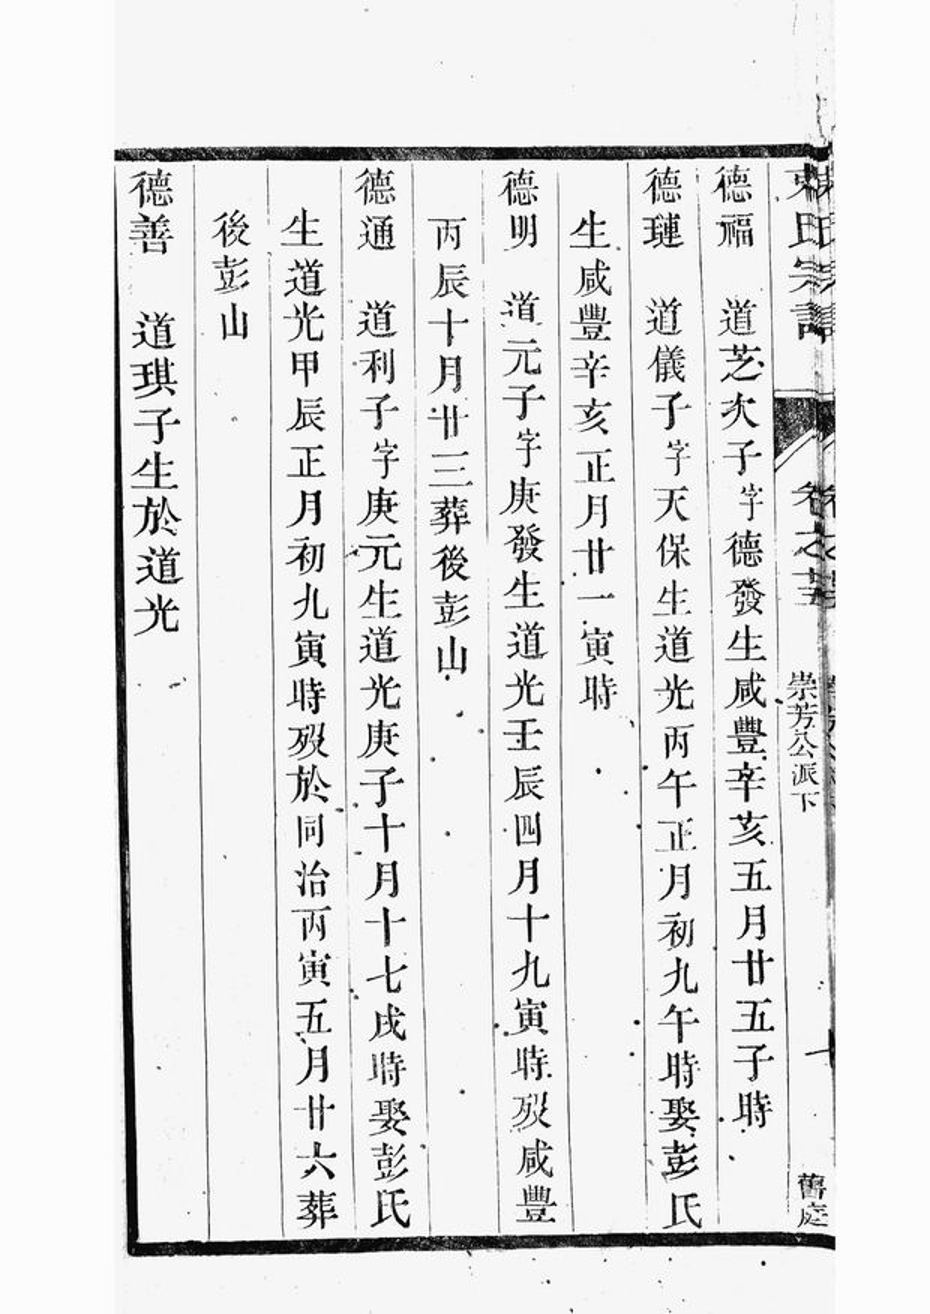 氏宗譜 卷之 崇芳公派下 舊庭
德福 道芝次子字德發生咸豐辛亥五月廿五子時
德璉 道儀子字天保生道光丙午正月初九午時娶彭氏
生咸豐辛亥正月廿一寅時
德明 道元子字庚發生道光壬辰四月十九寅時歿咸豐
丙辰十月廿三葬後彭山
德通 道利子字庚元生道光庚子十月十七戌時娶彭氏
生道光甲辰正月初九寅時歿於同治丙寅五月廿六葬
後彭山
德善 道琪子生於道光